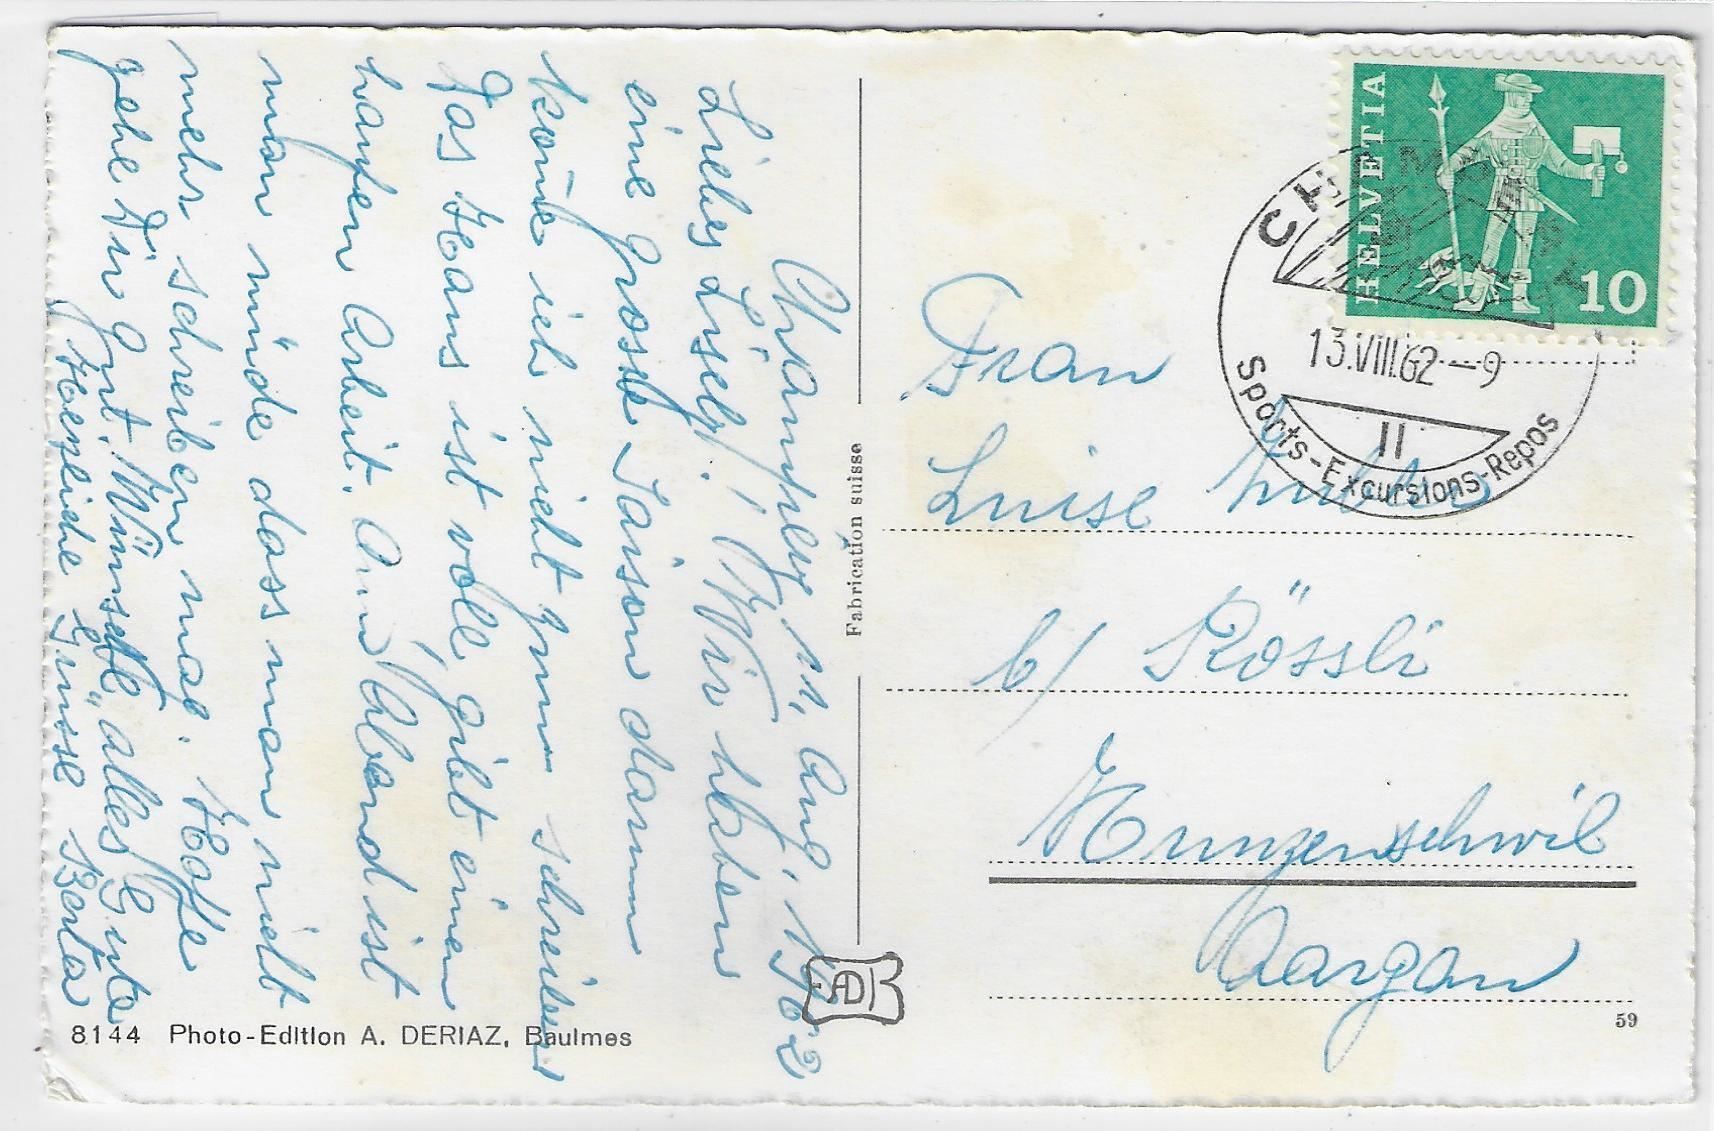 Champéry, 11. Aug. 1962
Liebes Lisely! Wir haben
eine grosse Saison darum
konnte ich nicht zum schreiben
Das Haus ist voll, gibt einen
haufen Arbeit. Am Abend ist
man müde dass man nicht
mehr schreiben mag. Hoffe
gehe Dir gut. Wünsche alles Gute
Herzliche Grüsse Berta
HELVETIA
10
CHAMPÉRY
13.VIII.62-9
II
Sports-Excursions-Repos
Frau
Luise
b/ Rössli
Hunzenschwil
Aargau
Fabrication suisse
AD
59
8144 Photo-Edition A. DERIAZ, Baulmes